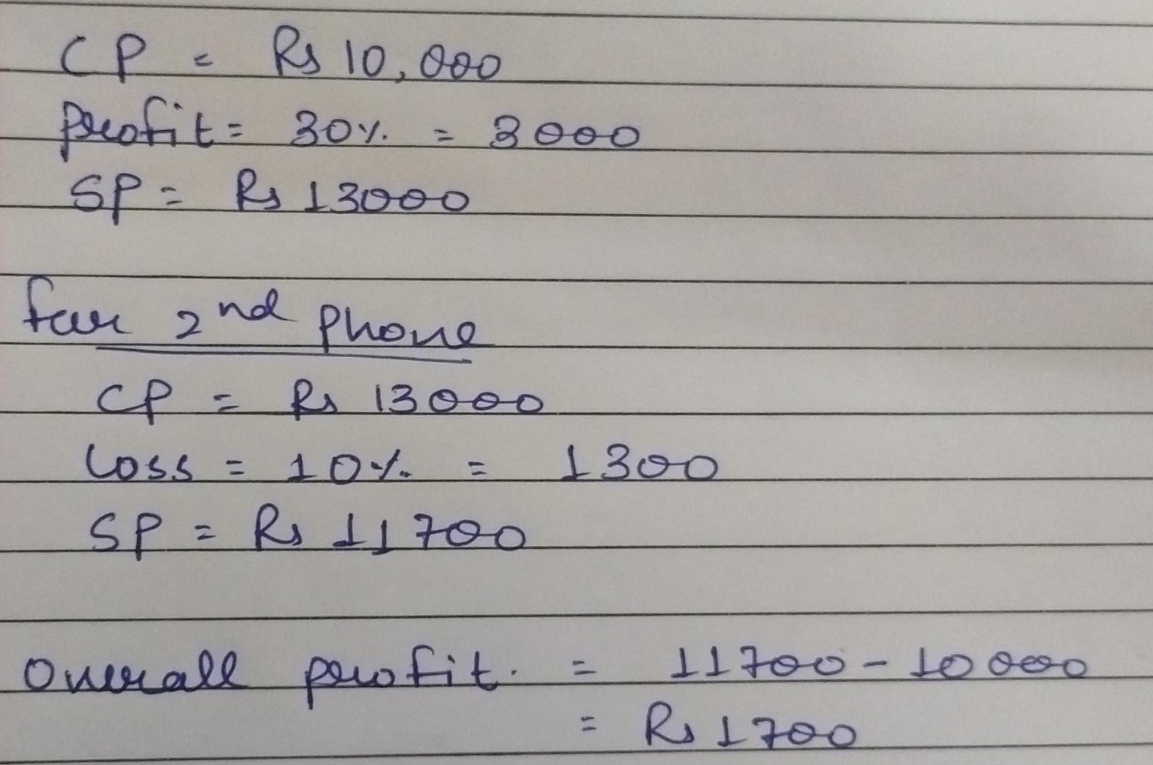 CP = Rs 10,000
Profit = 30% = 3000
SP = Rs 13000
for 2nd Phone
CP = Rs 13000
Loss = 10% = 1300
SP = Rs 11700
Overall profit. = 11700 - 10000
= Rs 1700